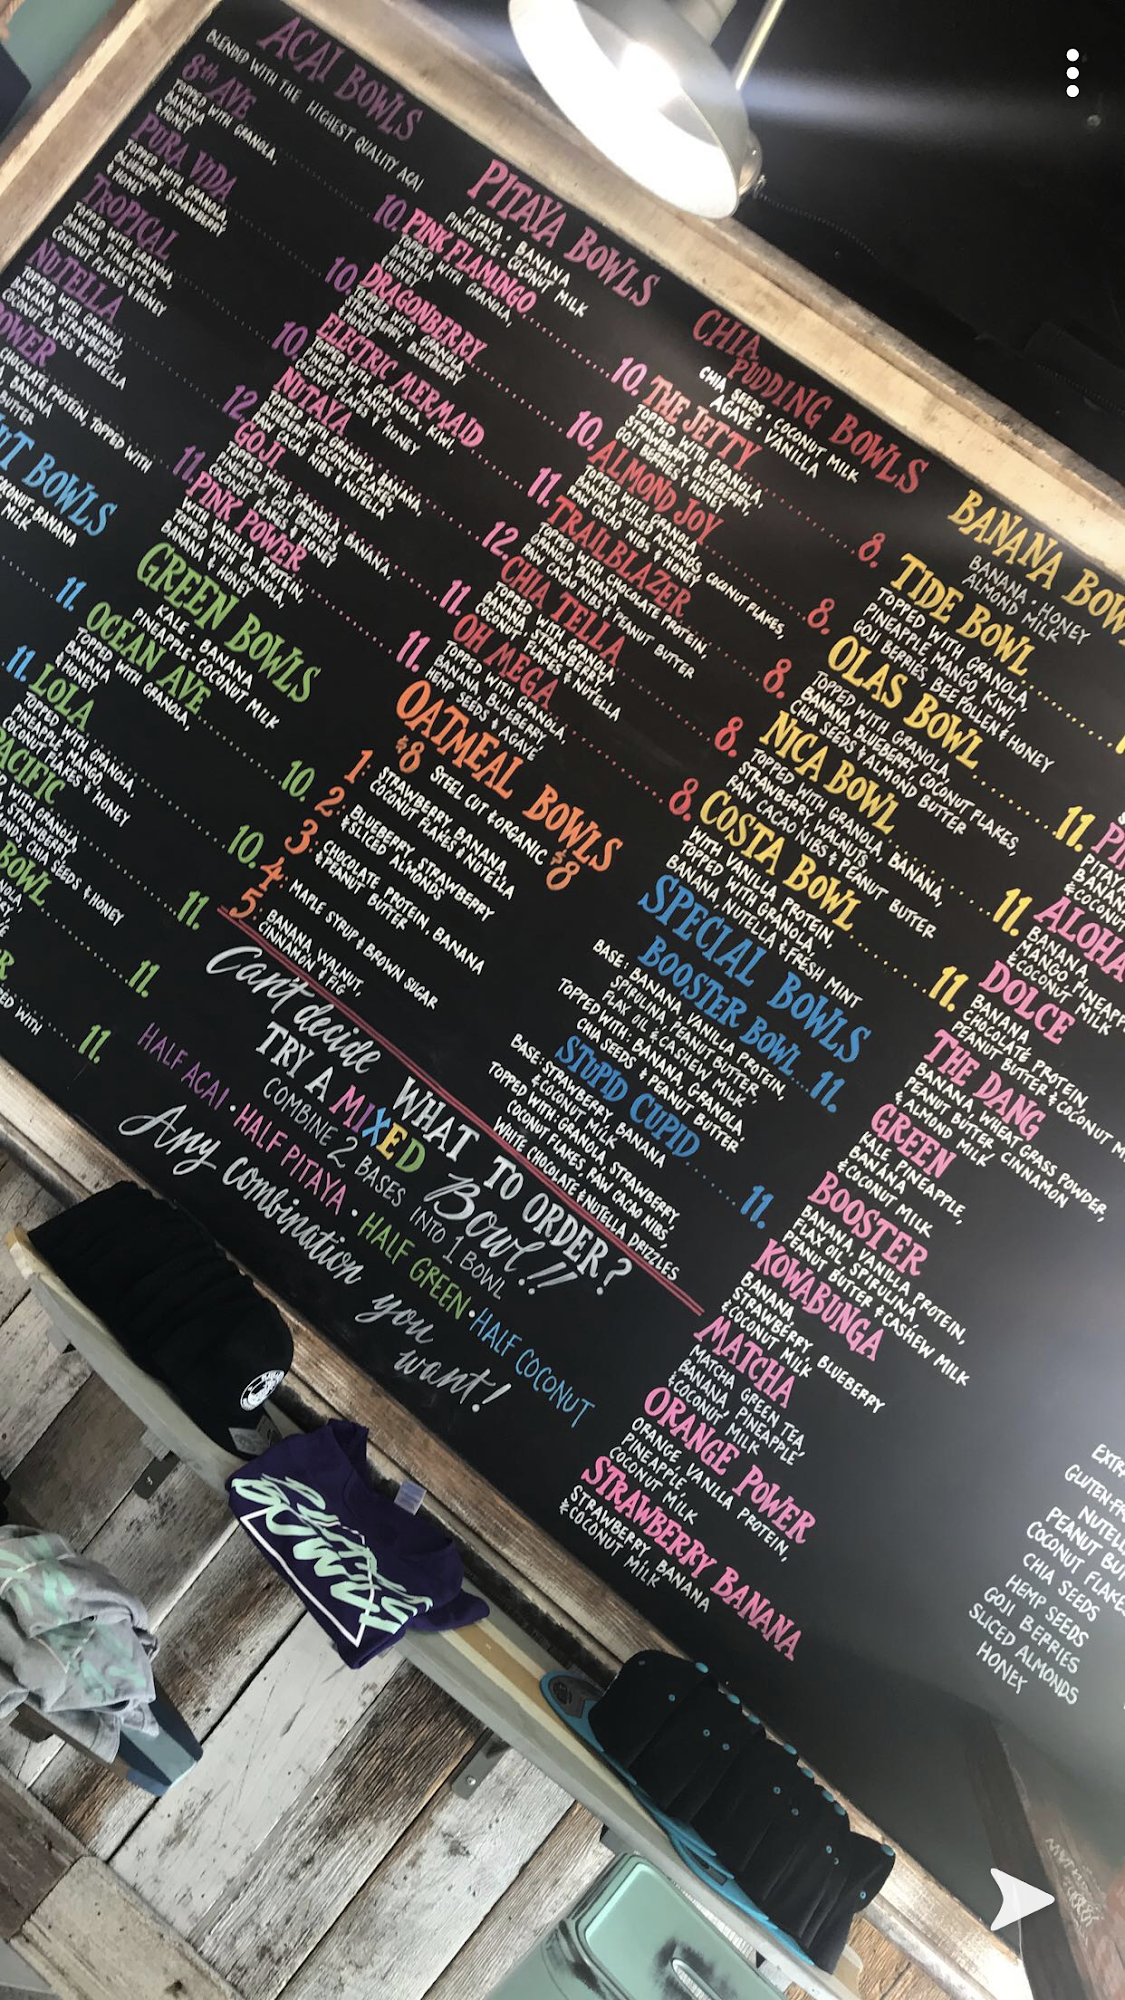 ACAI BOWLS
BLENDED WITH THE HIGHEST QUALITY ACAI
8th AVE
TOPPED WITH GRANOLA,
BANANA
& HONEY
10.
PURA VIDA
TOPPED WITH GRANOLA,
BLUEBERRY, STRAWBERRY
& HONEY
10.
TROPICAL
TOPPED WITH GRANOLA,
BANANA, PINEAPPLE,
COCONUT FLAKES & HONEY
10.
NUTELLA
TOPPED WITH GRANOLA,
BANANA, STRAWBERRY,
COCONUT FLAKES & NUTELLA
12.
POWER
CHOCOLATE PROTEIN, TOPPED WITH
BANANA
BUTTER
11.
BOWLS
BANANA
MILK
11.
11.
GREEN BOWLS
KALE · BANANA
PINEAPPLE · COCONUT MILK
OCEAN AVE
TOPPED WITH GRANOLA,
BANANA
& HONEY
10.
LOLA
TOPPED WITH GRANOLA,
PINEAPPLE, MANGO,
COCONUT FLAKES & HONEY
10.
PACIFIC
WITH GRANOLA,
STRAWBERRY
CHIA SEEDS & HONEY
11.
BOWL
11.
WITH
11.
PITAYA BOWLS
PITAYA · BANANA
PINEAPPLE · COCONUT MILK
PINK FLAMINGO
TOPPED WITH GRANOLA,
BANANA
& HONEY
10.
DRAGONBERRY
TOPPED WITH GRANOLA,
STRAWBERRY, BLUEBERRY
& HONEY
10.
ELECTRIC MERMAID
TOPPED WITH GRANOLA, KIWI,
PINEAPPLE, MANGO,
COCONUT FLAKES & HONEY
11.
NUTAYA
TOPPED WITH GRANOLA, BANANA,
BLUEBERRY, COCONUT FLAKES,
RAW CACAO NIBS & NUTELLA
12.
GOJI
TOPPED WITH GRANOLA, BANANA,
PINEAPPLE, GOJI BERRIES,
COCONUT FLAKES & HONEY
11.
PINK POWER
WITH VANILLA PROTEIN,
TOPPED WITH GRANOLA,
BANANA & HONEY
11.
OATMEAL BOWLS
$8 STEEL CUT & ORGANIC $8
1. STRAWBERRY, BANANA,
COCONUT FLAKES & NUTELLA
2. BLUEBERRY, STRAWBERRY
& SLICED ALMONDS
3. CHOCOLATE PROTEIN, BANANA
& PEANUT BUTTER
4. MAPLE SYRUP & BROWN SUGAR
5. BANANA, WALNUT,
CINNAMON & FIG
CHIA PUDDING BOWLS
CHIA SEEDS · COCONUT MILK
AGAVE · VANILLA
THE JETTY
TOPPED WITH GRANOLA,
STRAWBERRY, BLUEBERRY,
GOJI BERRIES & HONEY
8.
ALMOND JOY
TOPPED WITH GRANOLA,
BANANA, SLICED ALMONDS, COCONUT FLAKES,
RAW CACAO NIBS & HONEY
8.
TRAILBLAZER
WITH CHOCOLATE PROTEIN,
RAW CACAO NIBS & PEANUT BUTTER
8.
CHIA TELLA
TOPPED WITH GRANOLA,
BANANA, STRAWBERRY,
COCONUT FLAKES & NUTELLA
8.
OH MEGA
TOPPED WITH GRANOLA,
BANANA, BLUEBERRY,
HEMP SEEDS & AGAVE
8.
BANANA BOW
BANANA · HONEY
ALMOND MILK
TIDE BOWL
TOPPED WITH GRANOLA,
PINEAPPLE, MANGO, KIWI,
GOJI BERRIES, BEE POLLEN & HONEY
OLAS BOWL
TOPPED WITH GRANOLA,
BANANA, BLUEBERRY, COCONUT FLAKES,
CHIA SEEDS & ALMOND BUTTER
11.
NICA BOWL
TOPPED WITH GRANOLA, BANANA,
STRAWBERRY, WALNUTS,
RAW CACAO NIBS & PEANUT BUTTER
11.
COSTA BOWL
WITH VANILLA PROTEIN,
TOPPED WITH GRANOLA,
BANANA, NUTELLA & FRESH MINT
11.
SPECIAL BOWLS
BOOSTER BOWL 11.
BASE: BANANA, VANILLA PROTEIN,
SPIRULINA, PEANUT BUTTER,
FLAX OIL & CASHEW MILK
TOPPED WITH: BANANA, GRANOLA,
CHIA SEEDS & PEANUT BUTTER
STUPID CUPID 11.
BASE: STRAWBERRY, BANANA
& COCONUT MILK
TOPPED WITH: GRANOLA, STRAWBERRY,
COCONUT FLAKES, RAW CACAO NIBS,
WHITE CHOCOLATE & NUTELLA DRIZZLES
Can't decide WHAT TO ORDER?
TRY A MIXED Bowl!!
COMBINE 2 BASES INTO 1 BOWL
HALF ACAI · HALF PITAYA · HALF GREEN · HALF COCONUT
Any combination you want!
PI
PITAYA
BANAN
& COCONU
ALOHA
BANANA,
MANGO, PINEAPP
& COCONUT MILK
DOLCE
BANANA,
CHOCOLATE PROTEIN,
PEANUT BUTTER & COCONUT M
THE DANG
BANANA, WHEAT GRASS POWDER,
PEANUT BUTTER, CINNAMON
& ALMOND MILK
GREEN
KALE, PINEAPPLE,
BANANA
& COCONUT MILK
BOOSTER
BANANA, VANILLA PROTEIN,
FLAX OIL, SPIRULINA,
PEANUT BUTTER & CASHEW MILK
KOWABUNGA
BANANA,
STRAWBERRY, BLUEBERRY
& COCONUT MILK
MATCHA
MATCHA GREEN TEA,
BANANA, PINEAPPLE,
& COCONUT MILK
ORANGE POWER
ORANGE, VANILLA PROTEIN,
PINEAPPLE,
COCONUT MILK
STRAWBERRY BANANA
STRAWBERRY, BANANA
& COCONUT MILK
EXTR
GLUTEN-F
NUTELL
PEANUT BU
COCONUT FLAKE
CHIA SEEDS
HEMP SEEDS
GOJI BERRIES
SLICED ALMONDS
HONEY
BOWLS